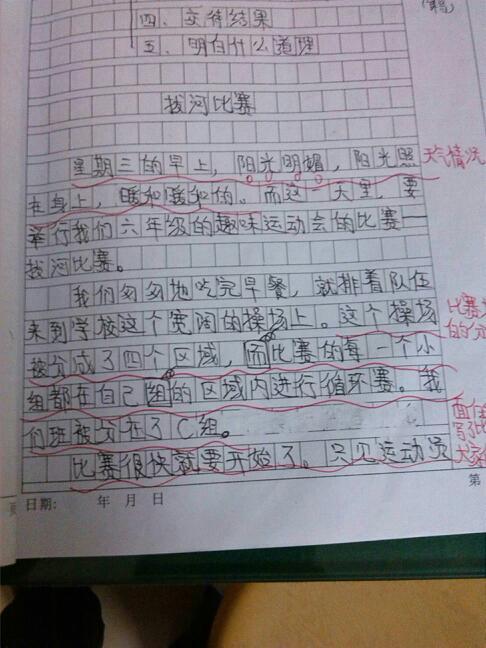 四、交待结果
五、明白什么道理
拔河比赛
星期三的早上，阳光明媚，阳光照
天气情况
在身上，暖和暖和的。而这一天里，要
举行我们六年级的趣味运动会的比赛——
拔河比赛。
我们匆匆地吃完早餐，就排着队伍
来到学校这个宽阔的操场上。这个操场
比赛
的分
被分成了四个区域，而比赛的每一个小
组都在自己组的区域内进行循环赛。我
们班被分在了C组。
面
写了比
大家
比赛很快就要开始了。只见运动员
日期： 年 月 日
第